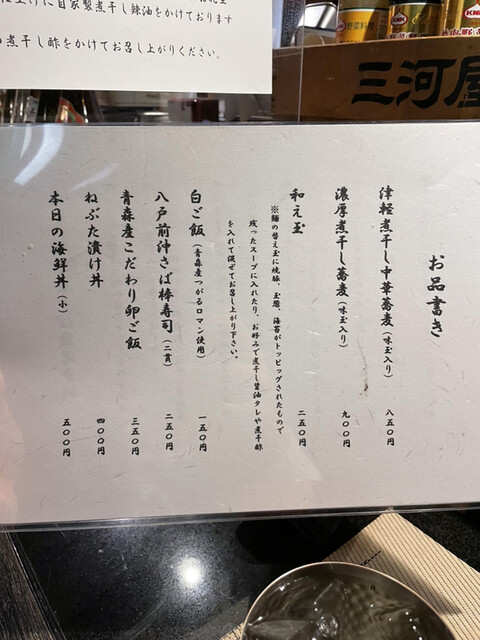 自家製煮干し辣油をかけております
煮干し酢をかけてお召し上がりください。
野菜料理
三河屋
お品書き
津軽煮干し中華蕎麦（味玉入り） 八五〇円
濃厚煮干し蕎麦（味玉入り） 九〇〇円
和え玉 二五〇円
※麺の替え玉に焼豚、玉葱、海苔がトッピングされたもので
残ったスープに入れたり、お好みで煮干し醤油タレや煮干酢
を入れて混ぜてお召し上がり下さい。
白ご飯（青森産つがるロマン使用） 一五〇円
八戸前沖さば棒寿司（二貫） 二五〇円
青森産こだわり卵ご飯 三五〇円
ねぶた漬け丼 四〇〇円
本日の海鮮丼（小） 五〇〇円